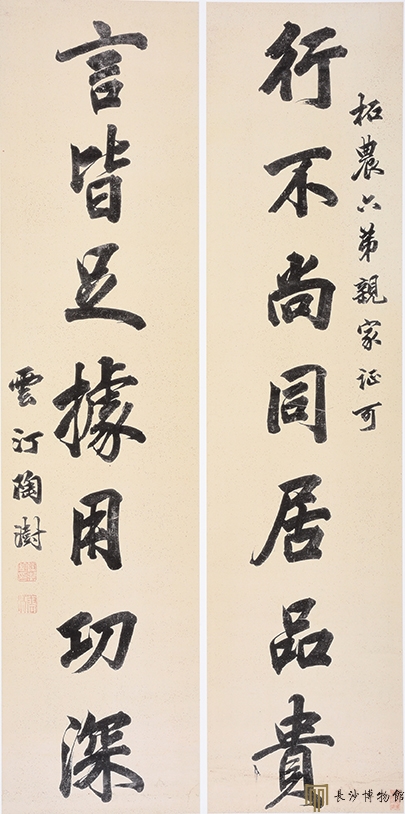 柘農六弟親家証可
行不尚同居品貴
言皆足據用功深
雲汀陶澍
長沙博物館